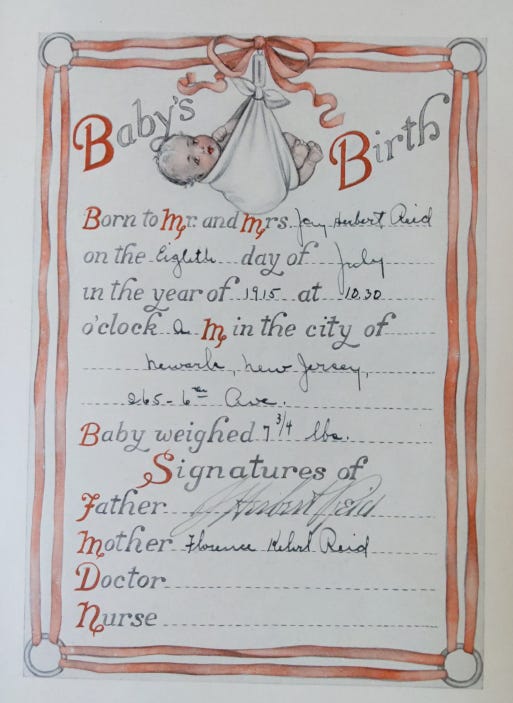 Baby's Birth
Born to Mr. and Mrs. Jay Herbert Reid
on the Eighth day of July
in the year of 1915 at 10.30
o'clock a M in the city of
Newark, New Jersey,
265 - 6th Ave.
Baby weighed 7 3/4 lbs.
Signatures of
Father J Herbert Reid
Mother Florence Reid
Doctor
Nurse